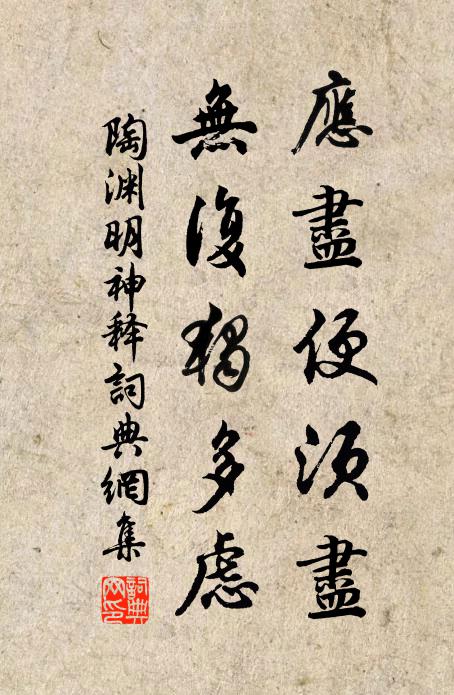 應盡便須盡
無復獨多慮
陶渊明神釋詞典網集
詞典网印